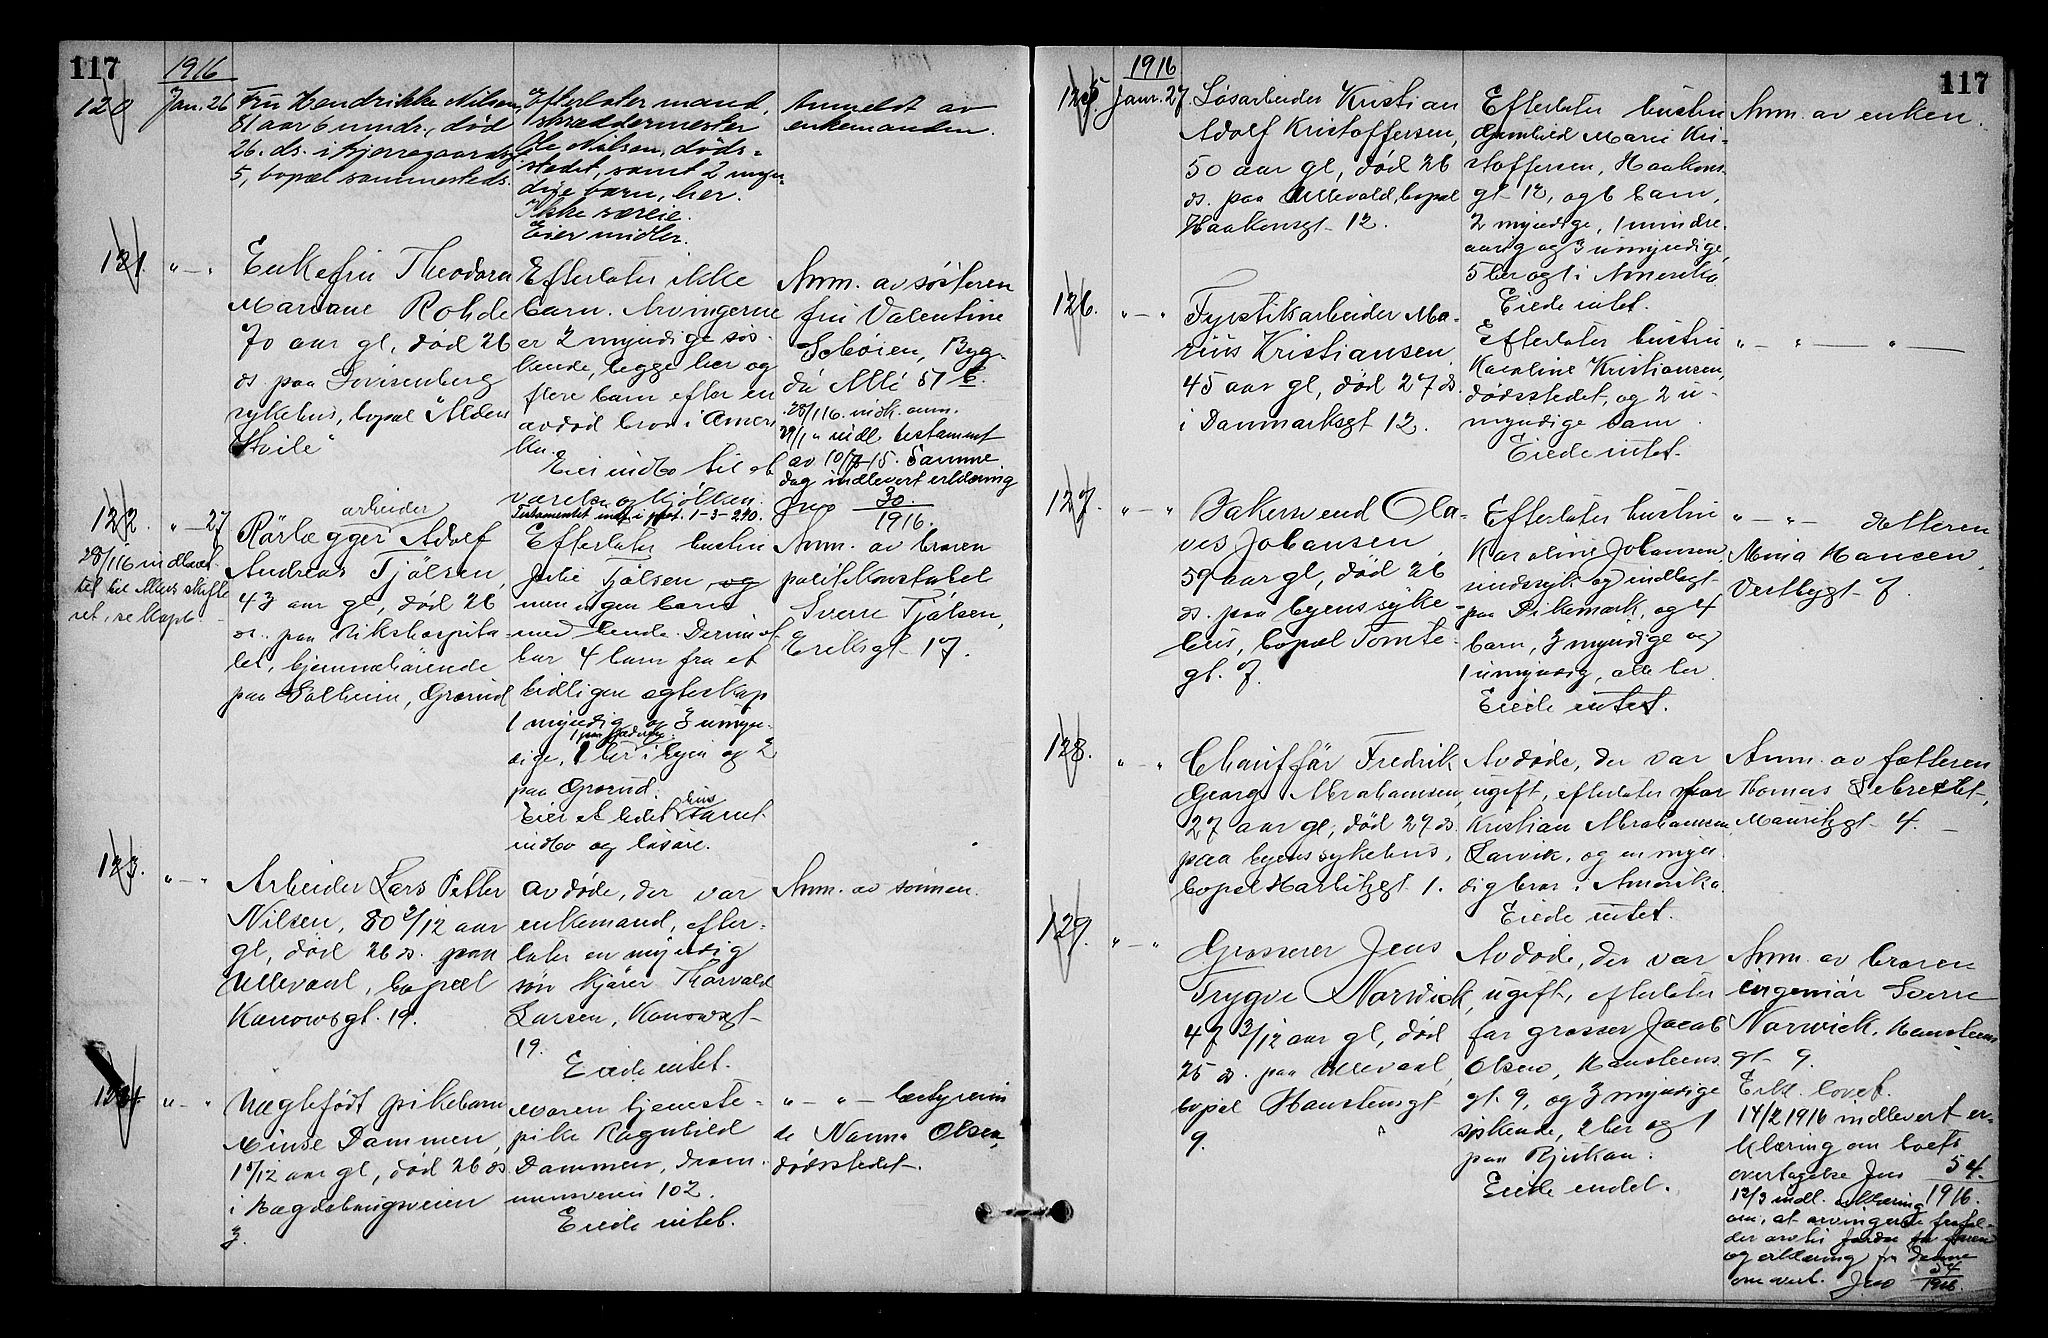 117
1916
120
Jan. 26
Fru Hendrikke Nilsen,
81 aar 6 mndr., død
26. ds. i Bjerregaardsgt
5, bopæl sammesteds.
Efterlater mand,
skræddermester
Ole Nilsen, døds-
stedet, samt 2 myn-
dige barn, her.
Ikke særeie.
Eier midler.
Anmeldt av
enkemanden.
121.
" — "
Enkefru Theodora
Mariane Rohde
70 aar gl, død 26
ds. paa Lovisenberg
sykehus, bopæl "Alders
Hvile"
Efterlater ikke
barn. Arvingerne
er 2 myndige søs-
kende, begge her og
flere barn efter en
avdød bror i Ameri
ka.
Eier indbo til et
værelse og kjøkken.
Testamentet indf. i prot. 1-3-290.
Anm. av søsteren
fru Valentine
Schøien, Byg-
dø Allé 57 b.
28/1 16. indk. anm.
29/1 " indl. testament
av 10/7 15. Samme
dag indlevert erklæring
Jno 30.
1916.
122.
" — 27
28/1 16 indberet
tet til Akers skifte
ret, se kopb
arbeider
Rørlægger Adolf
Andreas Tjølsen,
43 aar gl, død 26
ds. paa Rikshospita
let, hjemmehørende
paa Solheim, Grorud
Efterlater hustru
Julie Tjølsen, og
men ingen barn
med hende. Derimot
har 4 barn fra et
tidligere egteskap
1 myndig og 3 umyn-
dige, 1 her i byen og 2
paa Grorud.
Eier et litet hus samt
indbo og løsøre.
Anm. av broren
politikonstabel
Sverre Tjølsen,
Eriksgt 17.
123.
" — "
Arbeider Lars Petter
Nilsen, 80 2/12 aar
gl, død 26 ds. paa
Ullevaal, bopæl
Kanowsgt. 19.
Avdøde, der var
enkemand, efter-
later en myndig
søn kjører Thorvald
Larsen, Kanowsgt
19.
Eiede intet.
Anm. av sønnen.
124.
" — "
Uegtefødt pikebarn
Minse Dammen,
1 5/12 aar gl, død 26 ds
i Magdeburgsveien
3.
moren tjeneste-
pike Ragnhild
Dammen, Dram-
mensveien 102.
Eiede intet.
" — " — bestyrerin
de Nanna Olsen,
dødsstedet.
117
1916
125
Janr. 27.
Løsarbeider Kristian
Adolf Kristoffersen,
50 aar gl, død 26
ds. paa Ullevaal, bopæl
Haakonsgt 12.
Efterlater hustru
Gunhild Marie Kri-
stoffersen, Haakons-
gt 12, og 6 barn,
2 myndige, 1 mindre-
aarig og 3 umyndige,
5 her og 1 i Amerika
Eiede intet.
Anm. av enken.
126.
" — "
Fyrstikarbeider Ma-
rius Kristiansen,
45 aar gl, død 27 ds.
i Danmarksgt 12.
Efterlater hustru
Karoline Kristiansen,
dødsstedet, og 2 u-
myndige barn.
Eiede intet.
" — " — " —
127.
" — "
Bakersvend Ola-
ves Johansen
59 aar gl, død 26
ds. paa byens syke-
hus, bopæl Tomte-
gt. 7.
Efterlater hustru
Karoline Johansen,
sindssyk og indlagt
paa Dikemark, og 4
barn, 3 myndige og
1 umyndig, alle her.
Eiede intet.
" — " — datteren
Mina Hansen,
Vestbygt 7.
128.
" — "
Chauffør Fredrik
Georg Abrahamsen,
27 aar gl, død 27 ds.
paa byens sykehus,
bopæl Harbitzgt 1.
Avdøde, der var
ugift, efterlater far
Kristian Abrahamsen,
Larvik, og en myn-
dig bror i Amerika.
Eiede intet.
Anm. av fætteren
Thomas Lebrecht,
Mauritzgt 4.
129.
" — "
Grosserer Jens
Trygve Norwick,
47 3/12 aar gl, død
25 ds. paa Ullevaal,
bopæl Hansteensgt
9.
Avdøde, der var
ugift, efterlater
far grosser Jacob
Olsen, Hansteens
gt. 9, og 3 myndige
søskende, 2 her og 1
paa Rjukan.
Eiede endel.
Anm. av broren
ingeniør Sverre
Norwick, Hansteens
gt 9.
Erkl. lovet.
14/2 1916 indlevert er-
klæring om boets
overtagelse Jno 54.
1916.
12/3 indl. erklæring
om, at arvingerne frafal-
der arv til fordel for faren
og erklæring fra denne
om arv. Jno 54
1916.